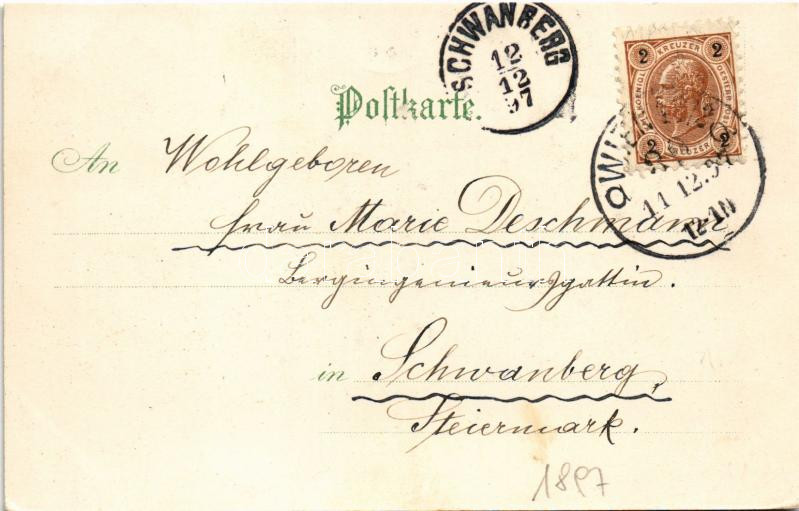 SCHWANBERG
12
12
97
2 KREUZER 2
2 KREUZER 2
Postkarte.
11 12.97
An Wohlgeboren
Frau Marie Deschmann
Bergingenieursgattin.
in Schwanberg,
Steiermark.
1897